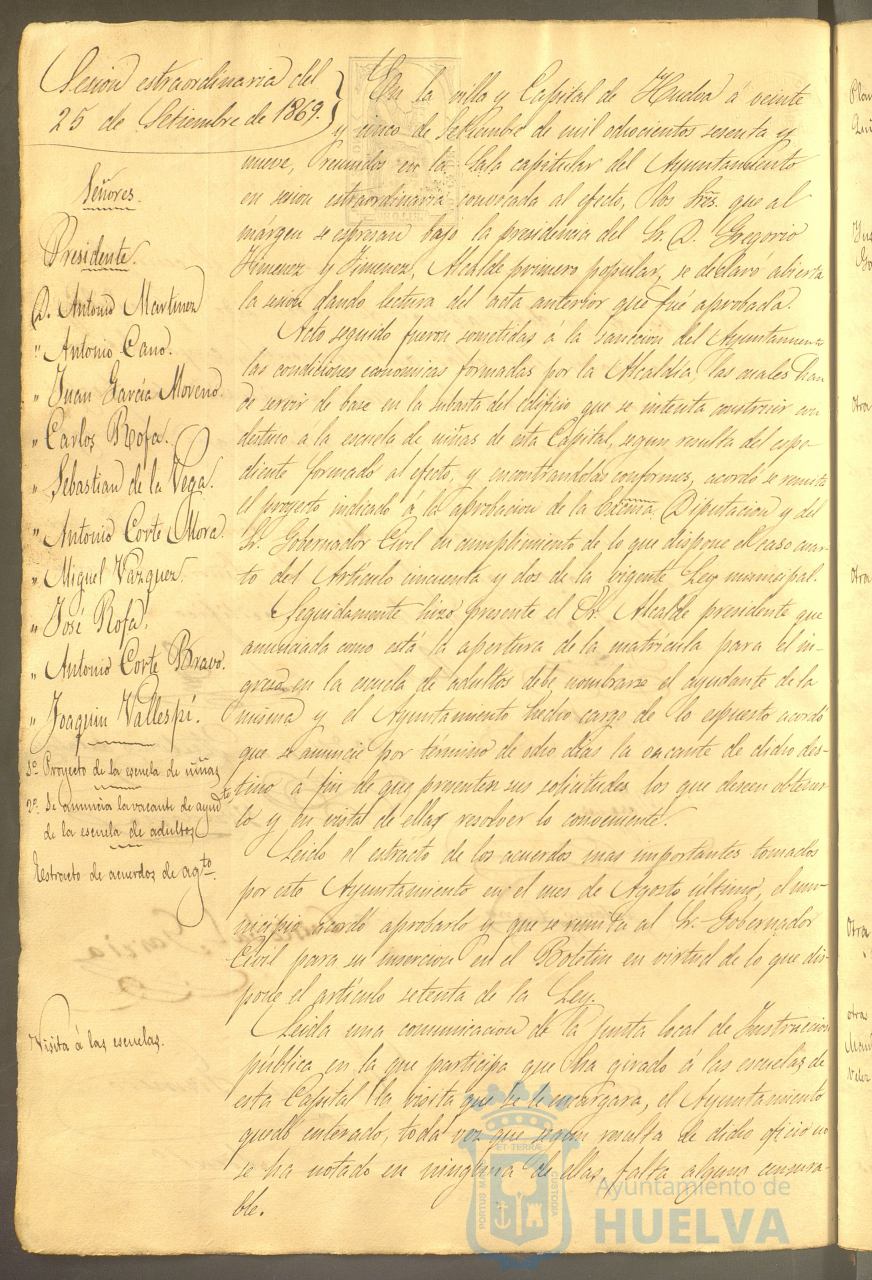 Sesion estraordinaria del
25 de Setiembre de 1869.
Señores.
Presidente.
D. Antonio Martinez
" Antonio Cano.
" Juan García Moreno.
" Carlos Rofa.
" Sebastian de la Vega.
" Antonio Corte Mora.
" Miguel Vazquez.
" José Rofa.
" Antonio Corte Bravo.
" Joaquin Vallespí.
1º Proyecto de la escuela de niñas
2º Se anuncia la vacante de ayudte
de la escuela de adultos
Estracto de acuerdos de agto.
Visita á las escuelas.
En la villa y Capital de Huelva á veinte
y cinco de Setiembre de mil ochocientos sesenta y
nueve, reunidos en la Sala capitular del Ayuntamiento
en sesion estraordinaria convocada al efecto, los Sres. que al
márgen se espresan bajo la presidencia del Sr. D. Gregorio
Jimenez y Jimenez, Alcalde primero popular, se declaró abierta
la sesion dando lectura del acta anterior que fué aprobada.
Acto seguido fueron sometidas á la sancion del Ayuntamiento
las condiciones económicas formadas por la Alcaldía, las cuales han
de servir de base en la subasta del edificio que se intenta construir con
destino á la escuela de niñas de esta Capital, segun resulta del espe-
diente formado al efecto, y encontrandolas conformes, acordó se remita
el proyecto indicado á la aprobacion de la Excma. Diputacion y del
Sr. Gobernador Civil en cumplimiento de lo que dispone el caso cuar-
to del Artículo cincuenta y dos de la vigente Ley municipal.
Seguidamente hizo presente el Sr. Alcalde presidente que
anunciada como está la apertura de la matrícula para el in-
greso en la escuela de adultos debe nombrarse el ayudante de la
misma y el Ayuntamiento hecho cargo de lo espuesto acordó
que se anuncie por término de ocho dias la vacante de dicho des-
tino á fin de que presenten sus solicitudes los que deseen obtener-
lo y en vista de ellas resolver lo conveniente.
Leido el estracto de los acuerdos mas importantes tomados
por este Ayuntamiento en el mes de Agosto último, el mu-
nicipio acordó aprobarlo y que se remita al Sr. Gobernador
Civil para su insercion en el Boletin en virtud de lo que dis-
pone el artículo setenta de la Ley.
Leida una comunicacion de la junta local de Instruccion
pública en la que participa que ha girado á las escuelas de
esta Capital la visita que se le encargara, el Ayuntamiento
quedó enterado, toda vez que segun resulta de dicho oficio no
se ha notado en ninguna de ellas falta alguna censura-
ble.
otra
otra
otra
otras
PORTUS MARIS
ET TERRAE
CUSTODIA
Ayuntamiento de
HUELVA